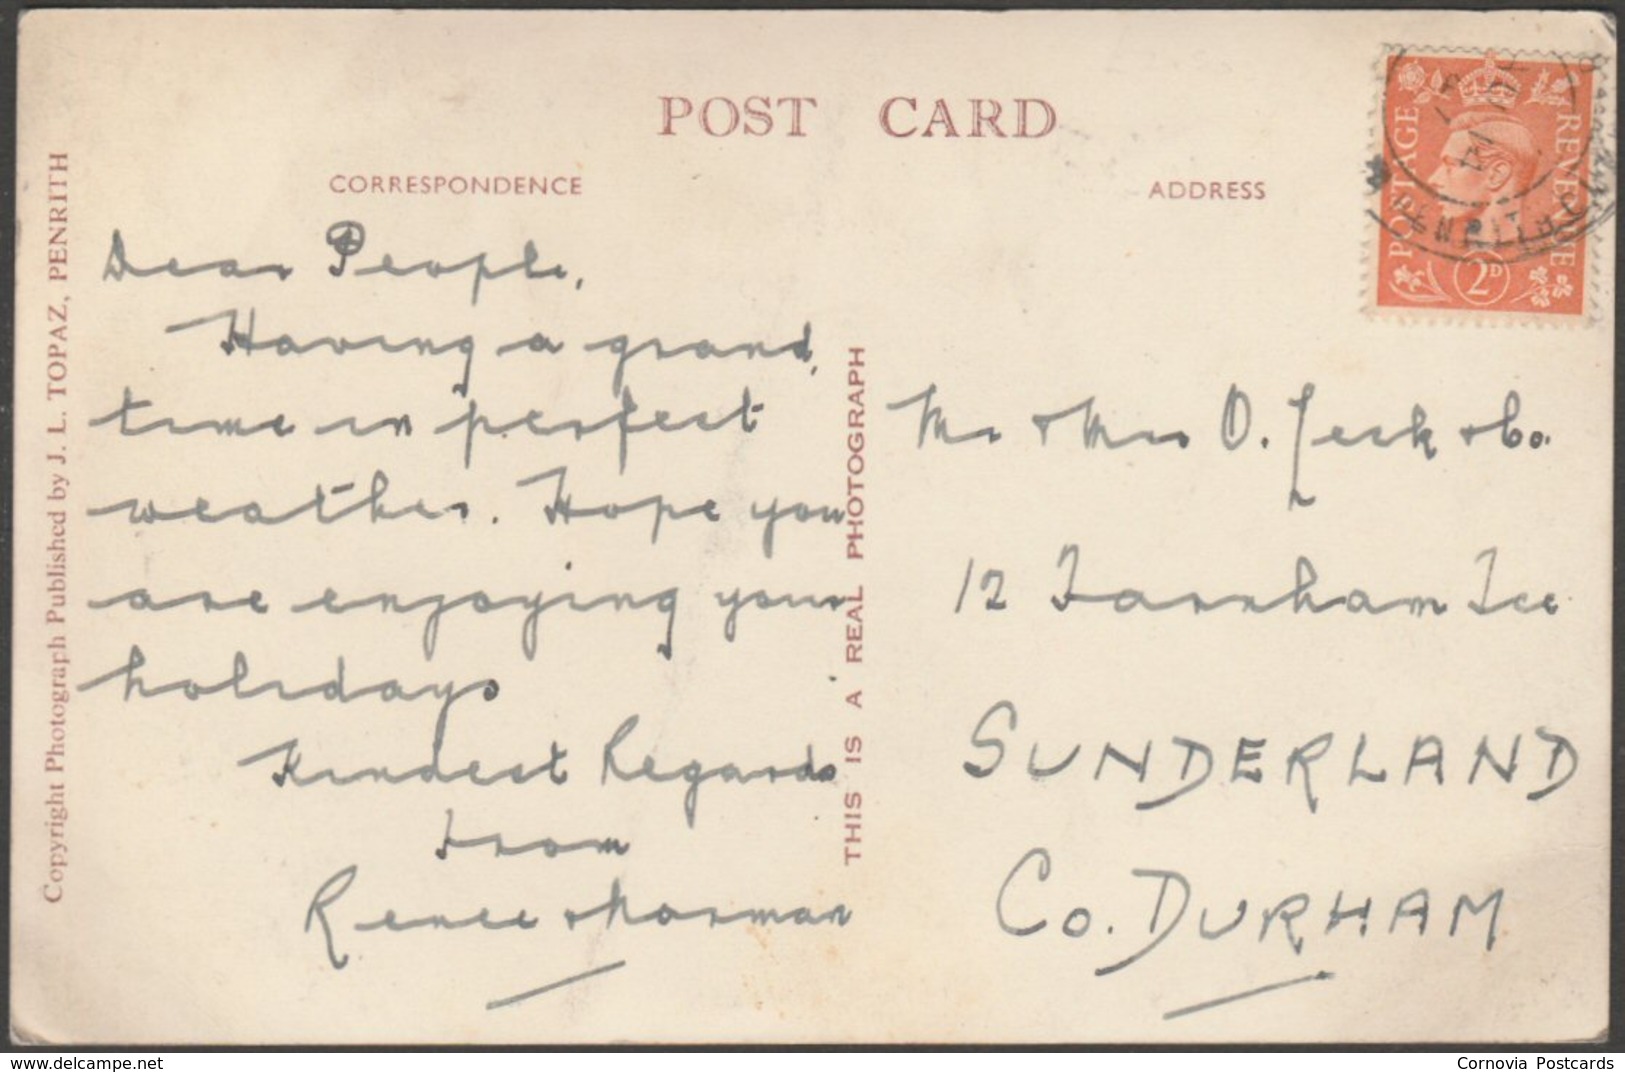 POST CARD
CORRESPONDENCE
ADDRESS
Copyright Photograph Published by J. L. TOPAZ, PENRITH
THIS IS A REAL PHOTOGRAPH
POSTAGE
REVENUE
2D
PENRITH
Dear People,
Having a grand,
time in perfect
weather. Hope you
are enjoying your
holidays
Kindest Regards
from
Renee & Norman
Mr & Mrs O. & Co.
12 Farnham Tce
SUNDERLAND
Co. DURHAM
delcampe.net
Cornovia Postcards